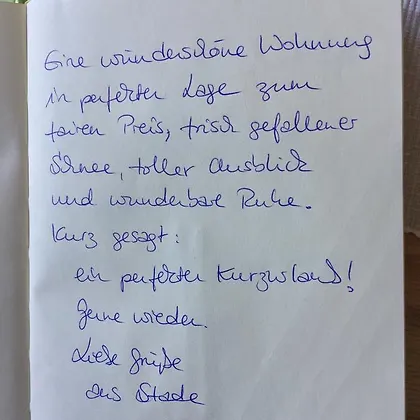 Eine wunderschöne Wohnung
in perfekter Lage zum
fairen Preis, frisch gefallener
Schnee, toller Ausblick
und wunderbare Ruhe.
Kurz gesagt:
ein perfekter Kurzurlaub!
Gerne wieder.
Liebe Grüße
aus Stade